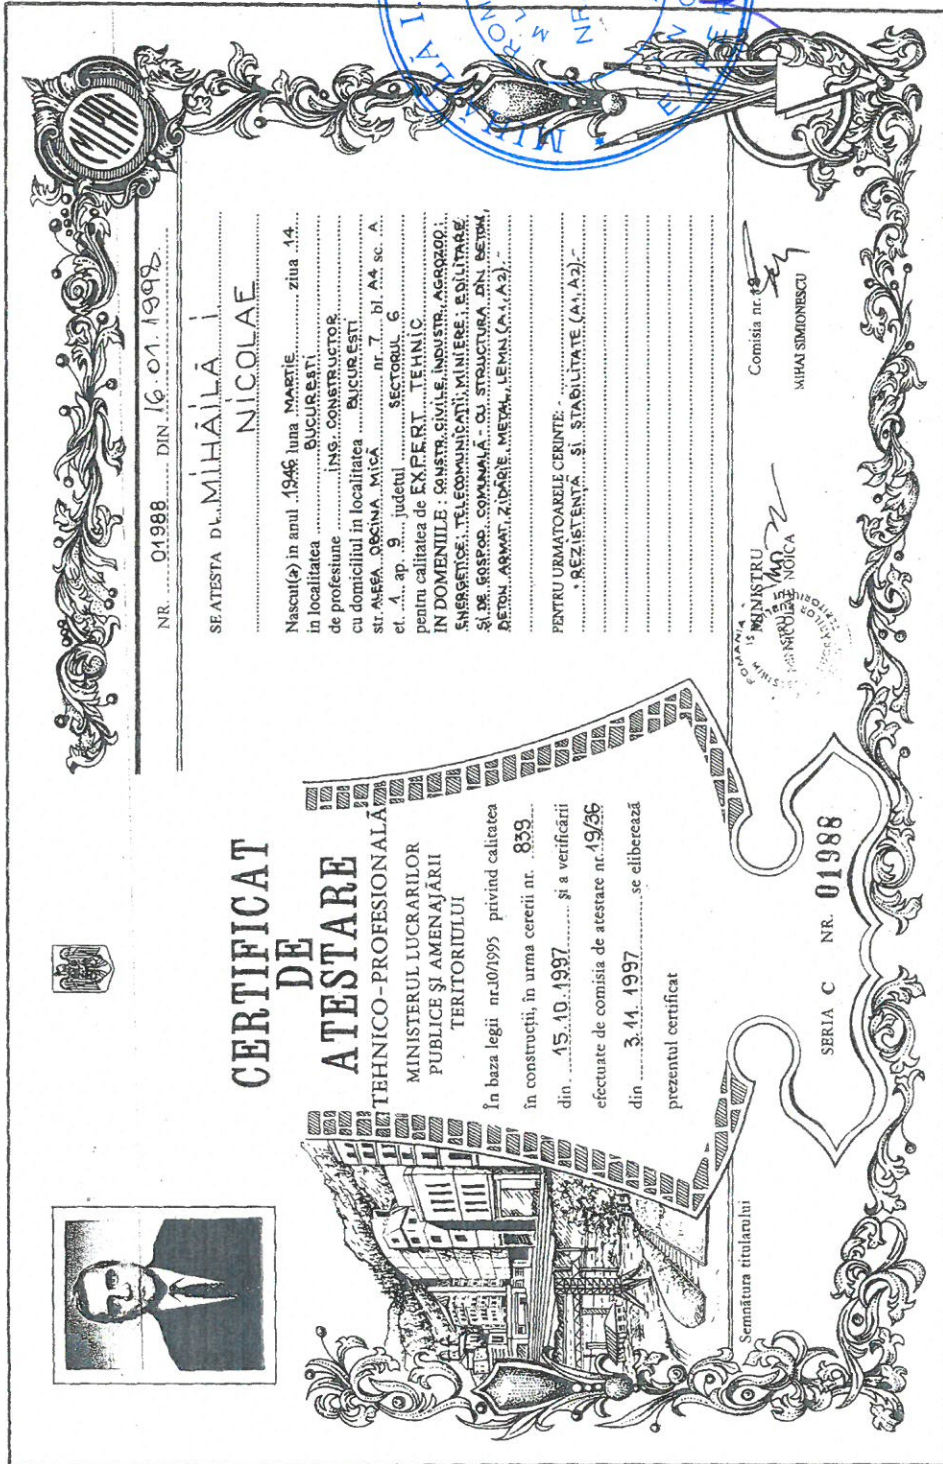 CERTIFICAT
DE
ATESTARE
TEHNICO-PROFESIONALĂ
MINISTERUL LUCRARILOR
PUBLICE ȘI AMENAJĂRII
TERITORIULUI
În baza legii nr.10/1995 privind calitatea
în construcții, în urma cererii nr. 839
din 15.10.1997 și a verificării
efectuate de comisia de atestare nr. 19/36
din 3.11.1997 se eliberează
prezentul certificat
Semnătura titularului
SERIA C NR. 01988
MLPAT
NR. 01988 DIN 16.01.1998.
SE ATESTA DL. MIHĂILĂ I.
NICOLAE
Nascut(a) in anul 1946 luna MARTIE ziua 14
in localitatea BUCURESTI
de profesiune ING. CONSTRUCTOR
cu domiciliul in localitatea BUCURESTI
str ALEEA OBCINA MICĂ nr 7 bl. A4 sc. A
et. 1 ap. 9 judetul SECTORUL 6
pentru calitatea de EXPERT TEHNIC
IN DOMENIILE: CONSTR. CIVILE, INDUSTR., AGROZOO;
ENERGETICE; TELECOMUNICATII; MINIERE; EDILITARE
ȘI DE GOSPOD. COMUNALĂ - CU STRUCTURA DIN BETON,
BETON ARMAT, ZIDĂRIE, METAL, LEMN (A1, A2).-
PENTRU URMATOARELE CERINTE: -
• REZISTENȚĂ ȘI STABILITATE (A1, A2).-
MINISTRU
NICOLAE NOICA
ROMANIA
Comisia nr. 19
MIHAI SIMIONESCU
MIHĂILĂ I.
NR